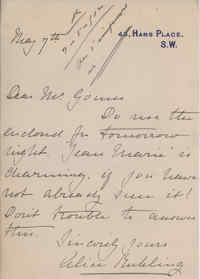 43, HANS PLACE.
S.W.
May 7th
Dear Mr.
Do use the
enclosed for tomorrow
night. "Jean Marie" is
charming, if you have
not already seen it!
Don't trouble to answer
this.
Sincerely yours
Alice